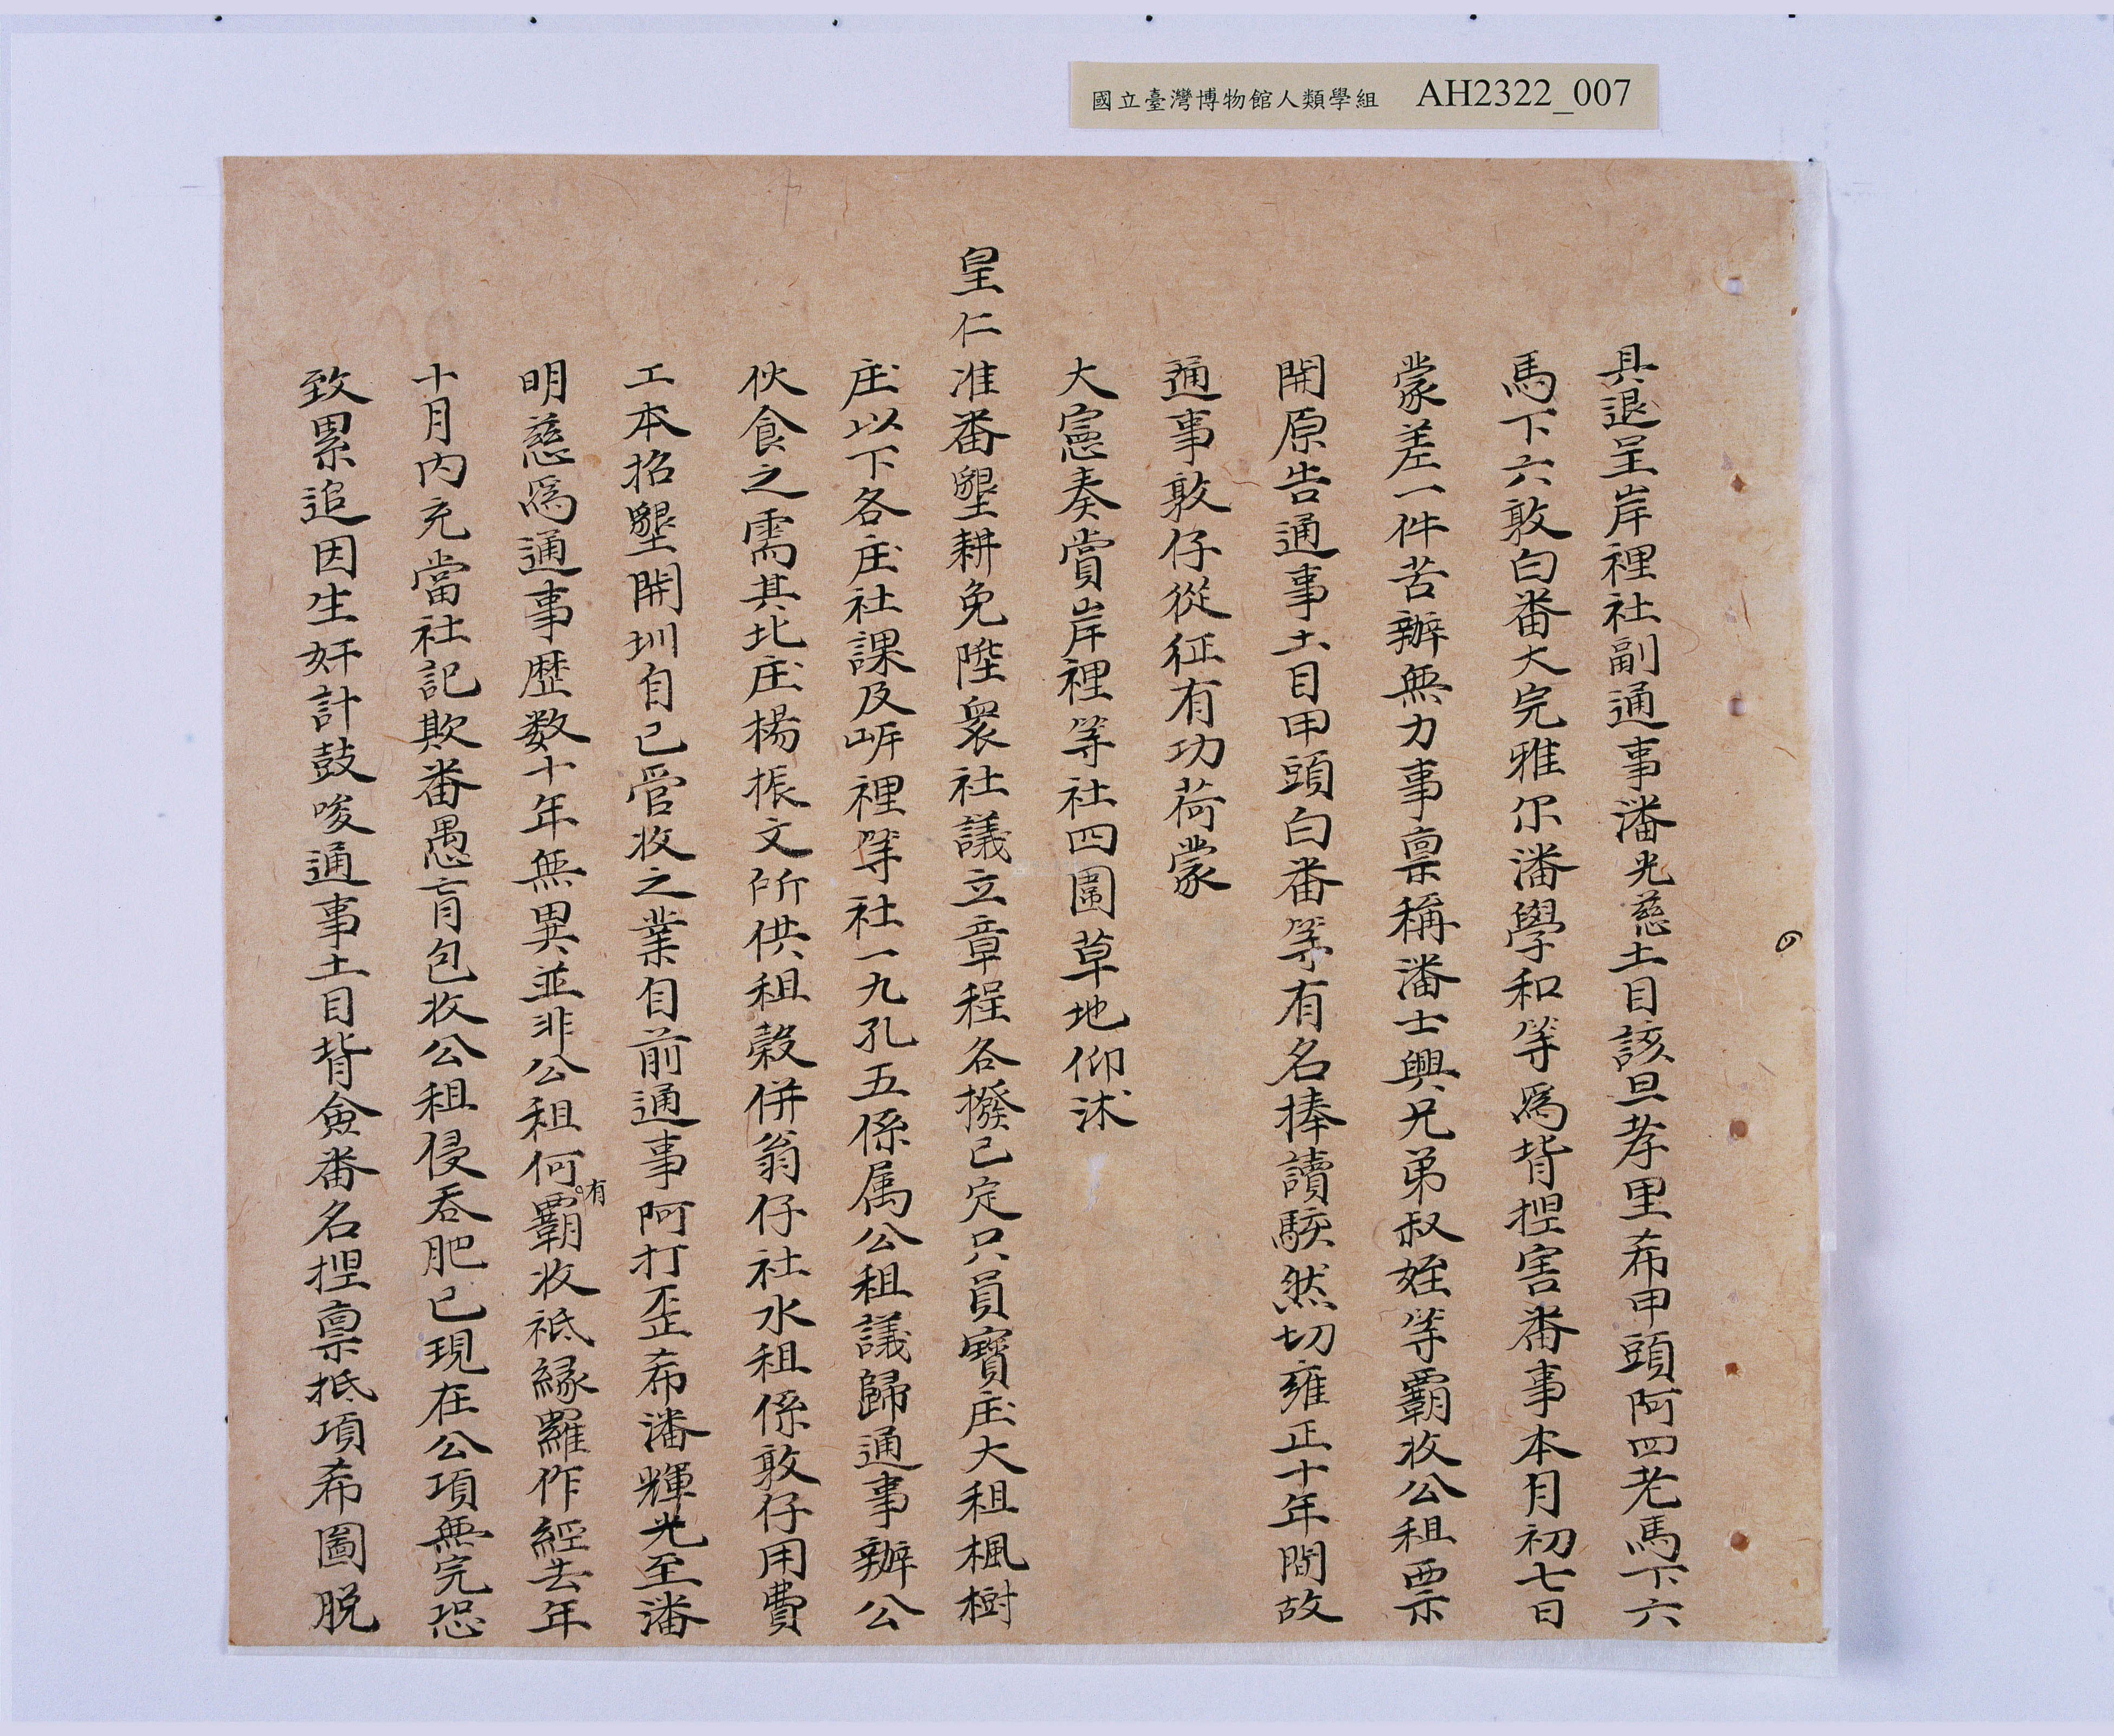 國立臺灣博物館人類學組 AH2322_007
具退呈岸裡社副通事潘光慈土目該旦孝里希甲頭阿四老馬下六
馬下六敦白番大完雅尓潘學和等為背捏害番事本月初七日
蒙差一件苦辦無力事稟稱潘士興兄弟叔姪等覇收公租票
開原告通事土目甲頭白番等有名捧讀駭然切雍正十年間故
通事敦仔從征有功荷蒙
大憲奏賞岸裡等社四圍草地仰沐
皇仁准番墾耕免陞衆社議立章程各撥已定只員寶庄大租楓樹
庄以下各庄社課及岸裡等社一九孔五係属公租議歸通事辦公
伙食之需其北庄楊振文所供租穀併翁仔社水租係敦仔用費
工本招墾開圳自己管收之業自前通事阿打歪希潘輝光至潘
明慈為通事歷数十年無異並非公租何有覇收祗緣羅作經去年
十月內充當社記欺番愚盲包收公租侵吞肥己現在公項無完恐
致累追因生奸計鼓唆通事土目背僉番名捏稟抵項希圖脱